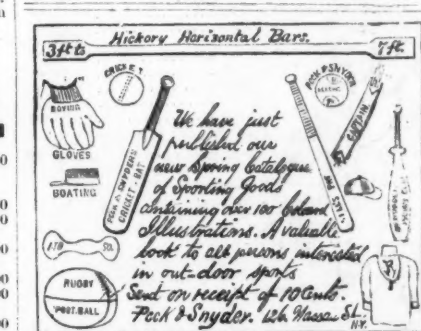 Hickory Horizontal Bars.
3 ft to
7 ft.
BOXING
GLOVES
CRICKET
PECK & SNYDER
CAPTAIN
BOATING
PECK & SNYDERS
CRICKET-BAT
RUGBY
FOOT-BALL
We have just
published our
new Spring Catalogue
of Sporting Goods
containing over 100 Colored
Illustrations. A valuable
book to all persons interested
in out-door sports
Sent on receipt of 10 Cents.
Peck & Snyder. 126 Nassau St.
N.Y.